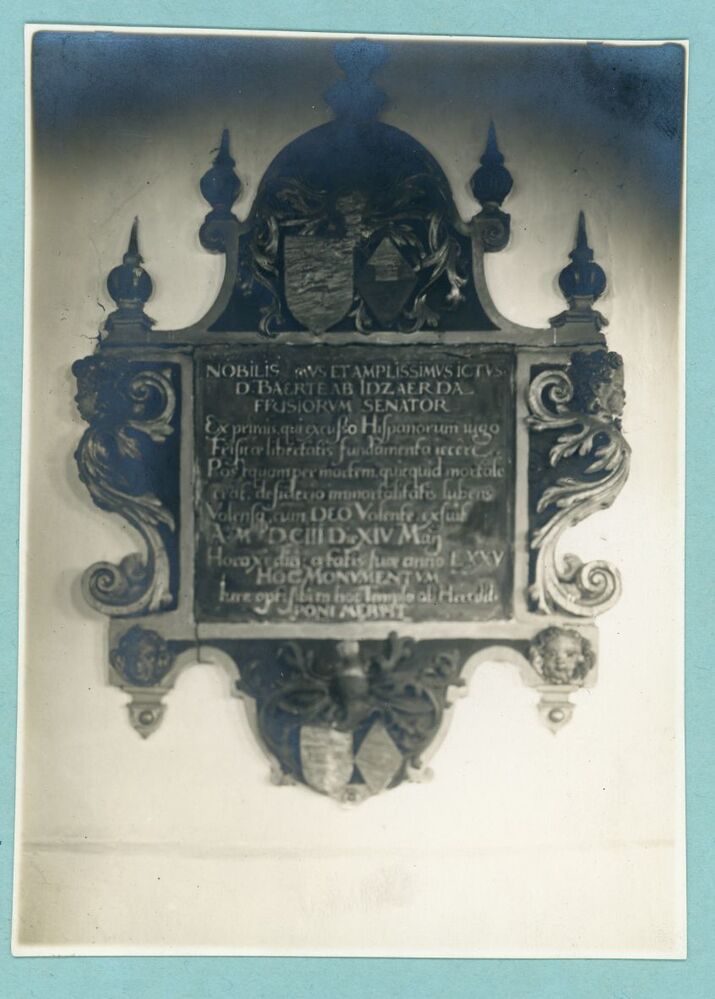 NOBILIS MVS ET AMPLISSIMVS ICTVS
D. BAERTE AB IDZAERDA
FRISIORVM SENATOR
Ex primis, qui excusso Hispanorum iugo
Frisicæ libertatis fundamenta iecere
Postquam per mortem, quicquid mortale
erat, desiderio immortalitatis lubens
Volensq, cum DEO Volente, exuit
A. M DCIII D. XIV Maij
Hora xi dia: ætatis suæ anno LXXV
HOC MONVMENTVM
hoc Templo ob
PONI